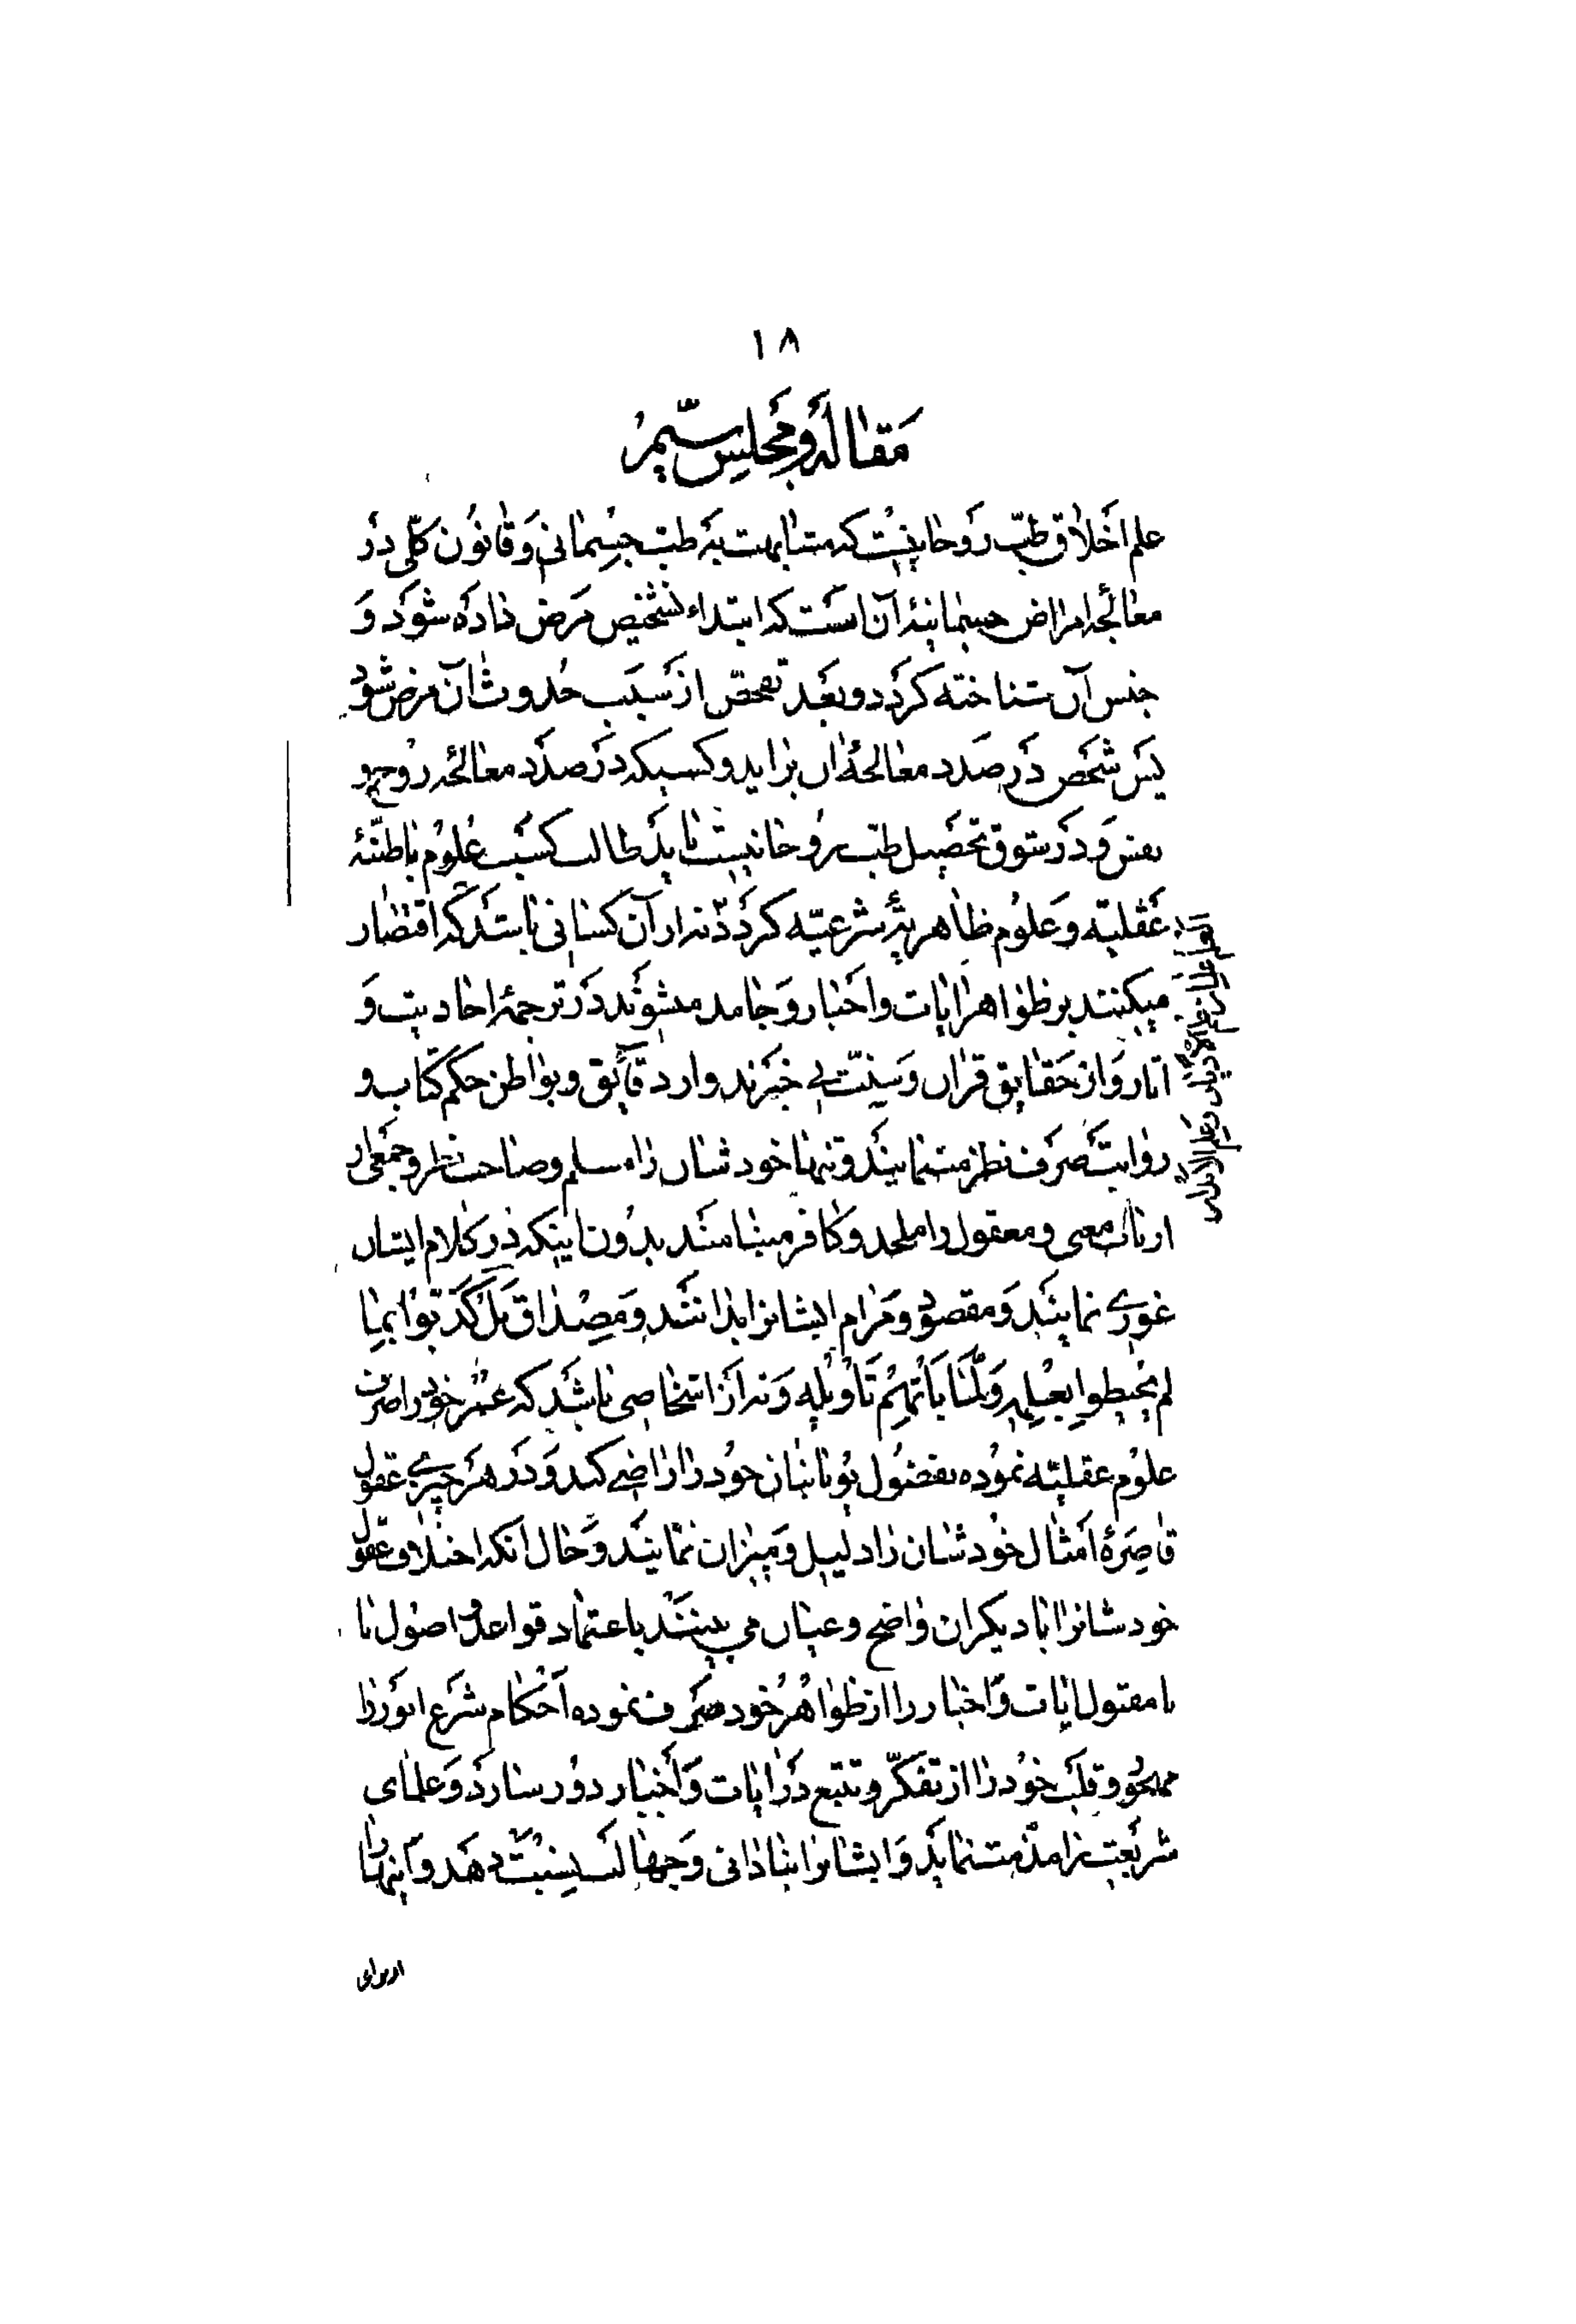 ۱۸
مقاله و مجلس سیّم
علم اخلاق طبّ روحانیست که مشابهت به طب جسمانی و قانون کلّی در
معالجه امراض جسمانیه آن است که ابتداء تشخیص مرض داده شود و
جنس آن شناخته کردد و بعد تفحّص از سبب حدوث آن مرض شود
پس شخص در صدد معالجهٔ ان براید و کسیکه در صدد معالجه روح و
نفس و در شوق تحصیل طب روحانیست باید طالب کسب علوم باطنّیه
عقلیّه و علوم ظاهریهٔ شرعیّه کردد نه از آن کسانی باشد که اقتصار
میکنند بر ظواهر ایات و اخبار و جامد میشوند در ترجمهٔ احادیث و
اثار و از حقایق قران و سنّت بی خبرند و از دقایق و بواطن حکم کتاب و
روایت صرف نظر مینمایند و تنها خودشان را مسلم و صاحب نظر و جمعی از
ارباب معنی و معقول را ملحد و کافر مینامند بدون اینکه در کلام ایشان
غوری نمایند و مقصود و مرام ایشانرا بدانند و مصداق بل کذّبوا بما
لم یحیطوا بعلمه و لمّا یأتهم تأویله و نه از اشخاصی باشد که عمر خود را صرف
علوم عقلیّه نموده بفضول یونانیان خود را راضی کند و در هر چیزی عقول
قاصرهٔ امثال خودشان را دلیل و میزان نمایند و حال انکه اختلاف عقول
خودشانرا با دیکران واضح و عیان می بینند باعتماد قواعد و اصول نا
نا مقبول ایات و اخبار را از ظواهر خود صرف نموده احکام شرع انور را
محو و قلب خود را از تفکّر و تتبع در ایات و اخبار دور سازد و علمای
شریعت را مذمت نماید و ایشانرا بنادانی و جهالت نسبت دهد و اینها را